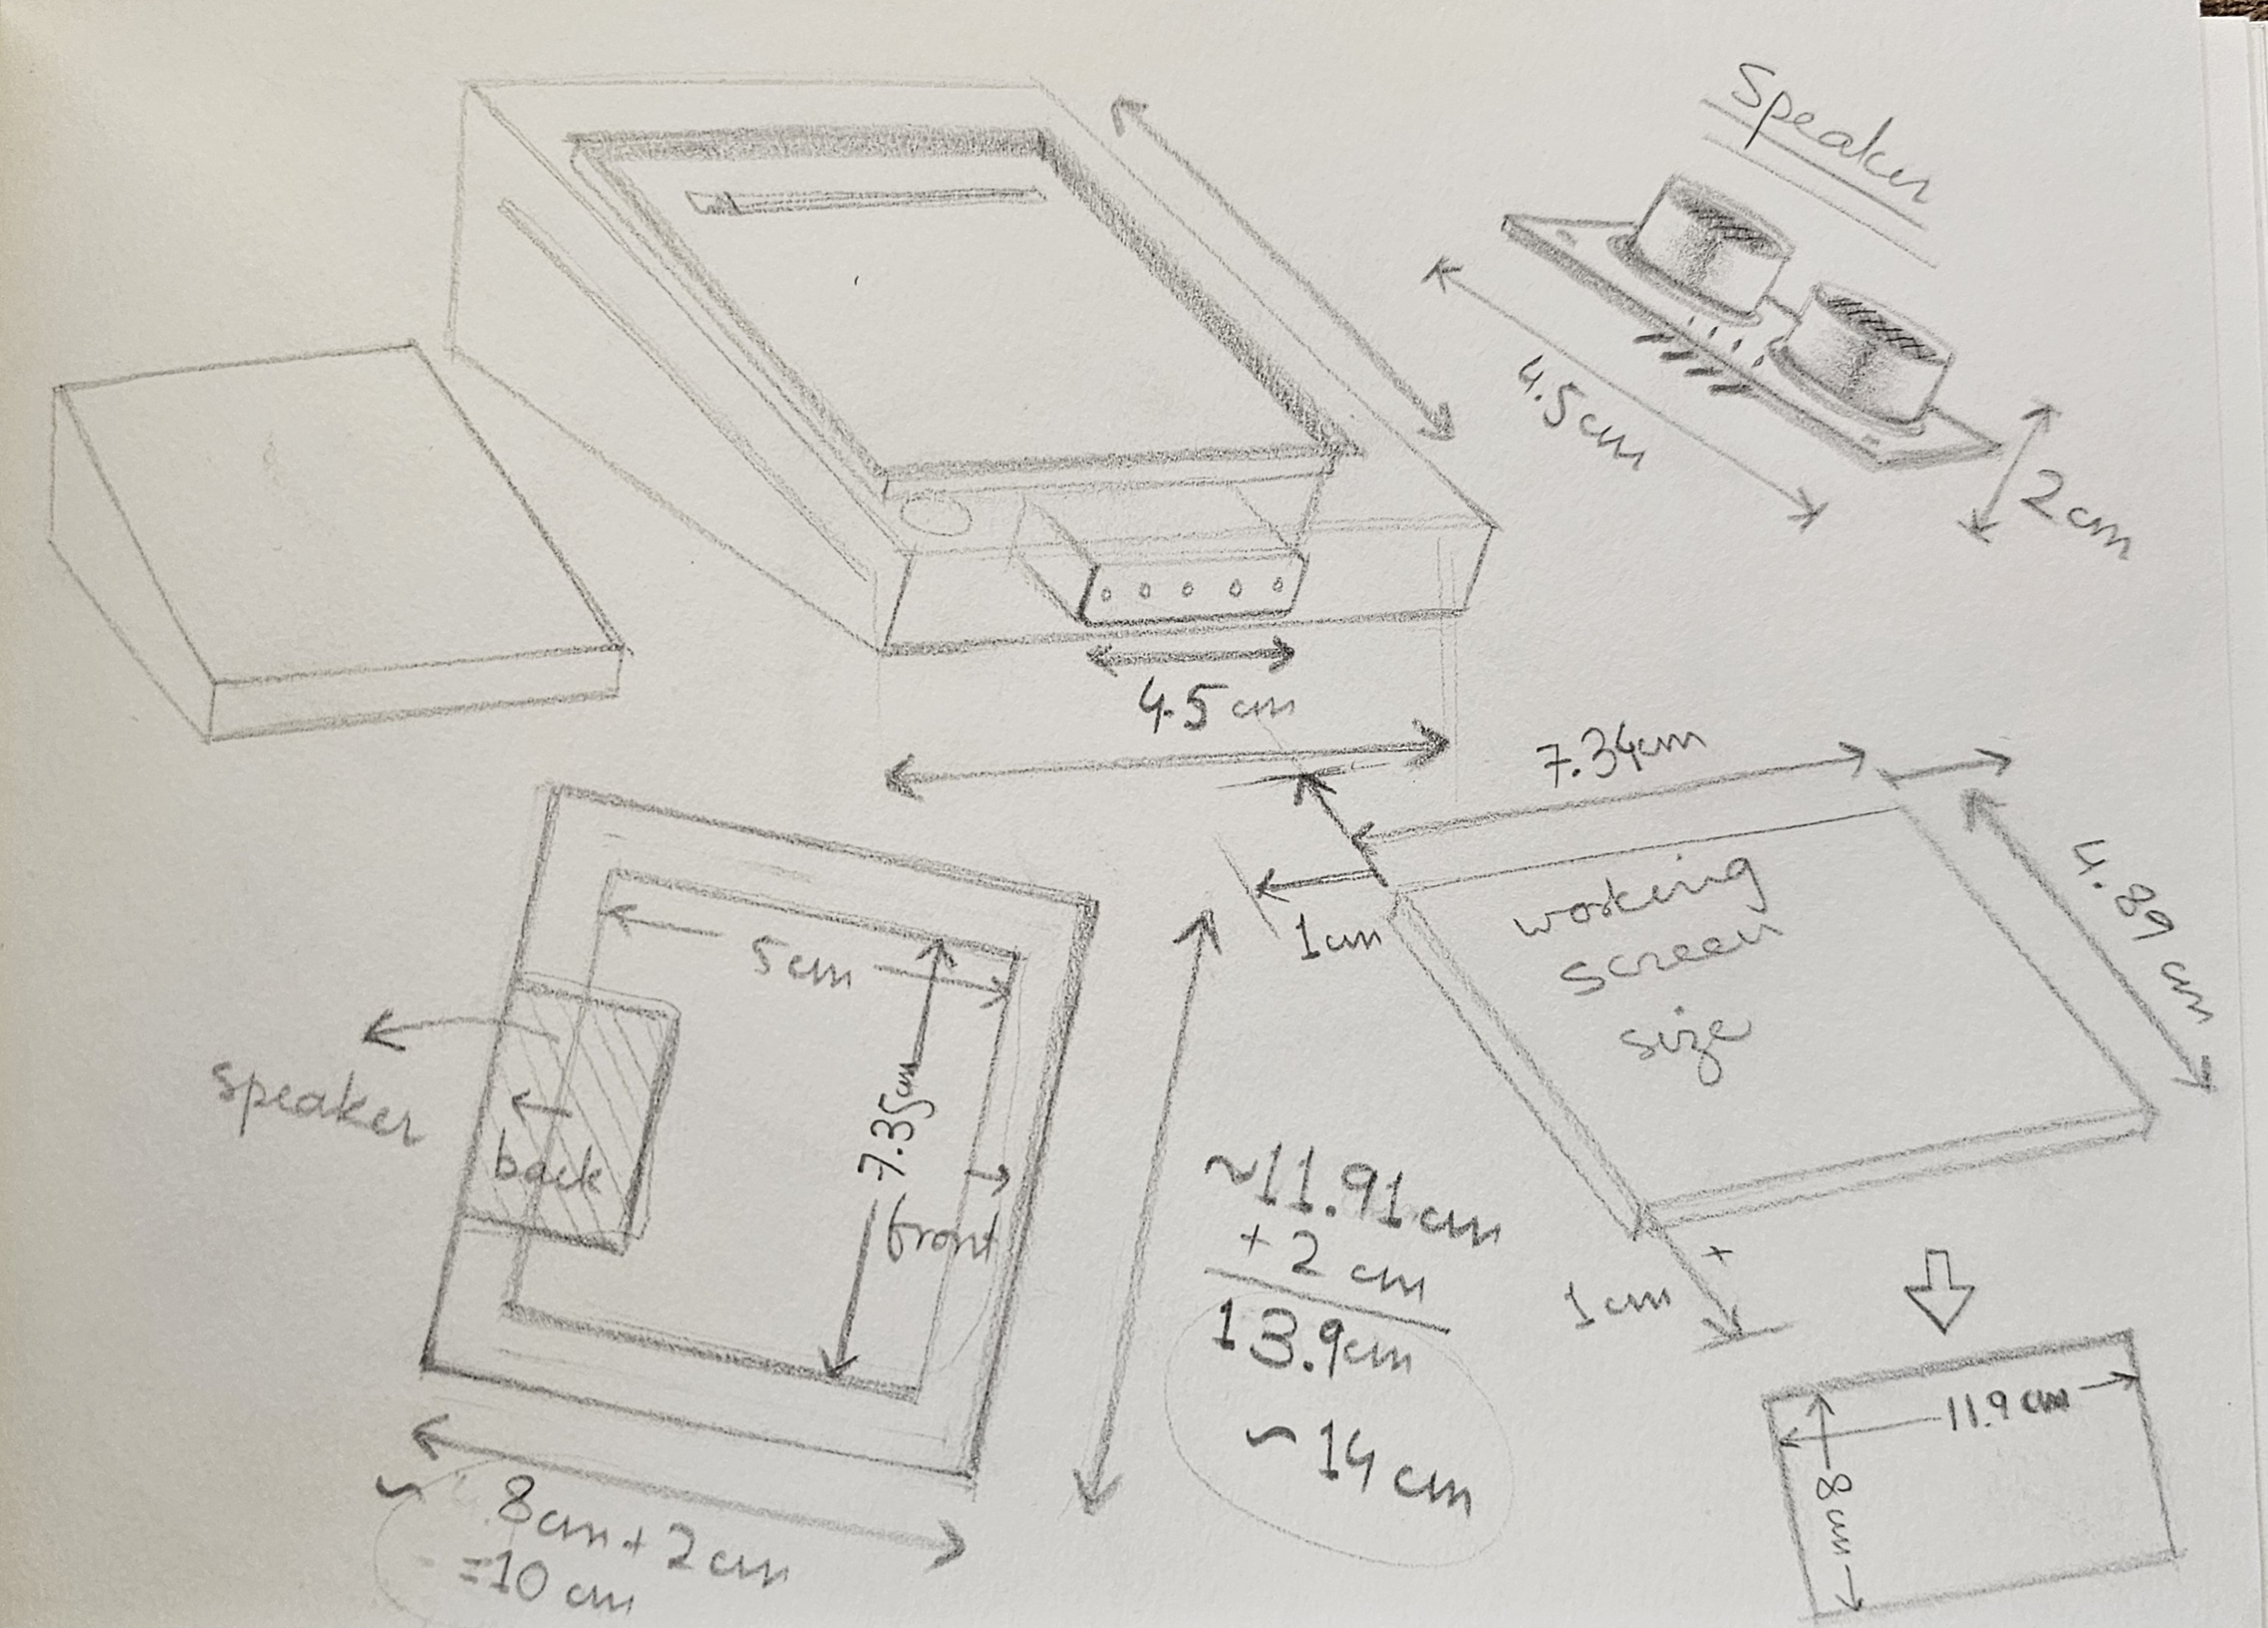 Speaker
4.5cm
2cm
4.5 cm
7.34cm
4.89 cm
1cm
working
screen
size
1cm
+
5cm
7.35cm
speaker
back
front
~11.91cm
+ 2 cm
13.9cm
~ 14 cm
11.9 cm
8cm
~ 8cm + 2cm
=10 cm